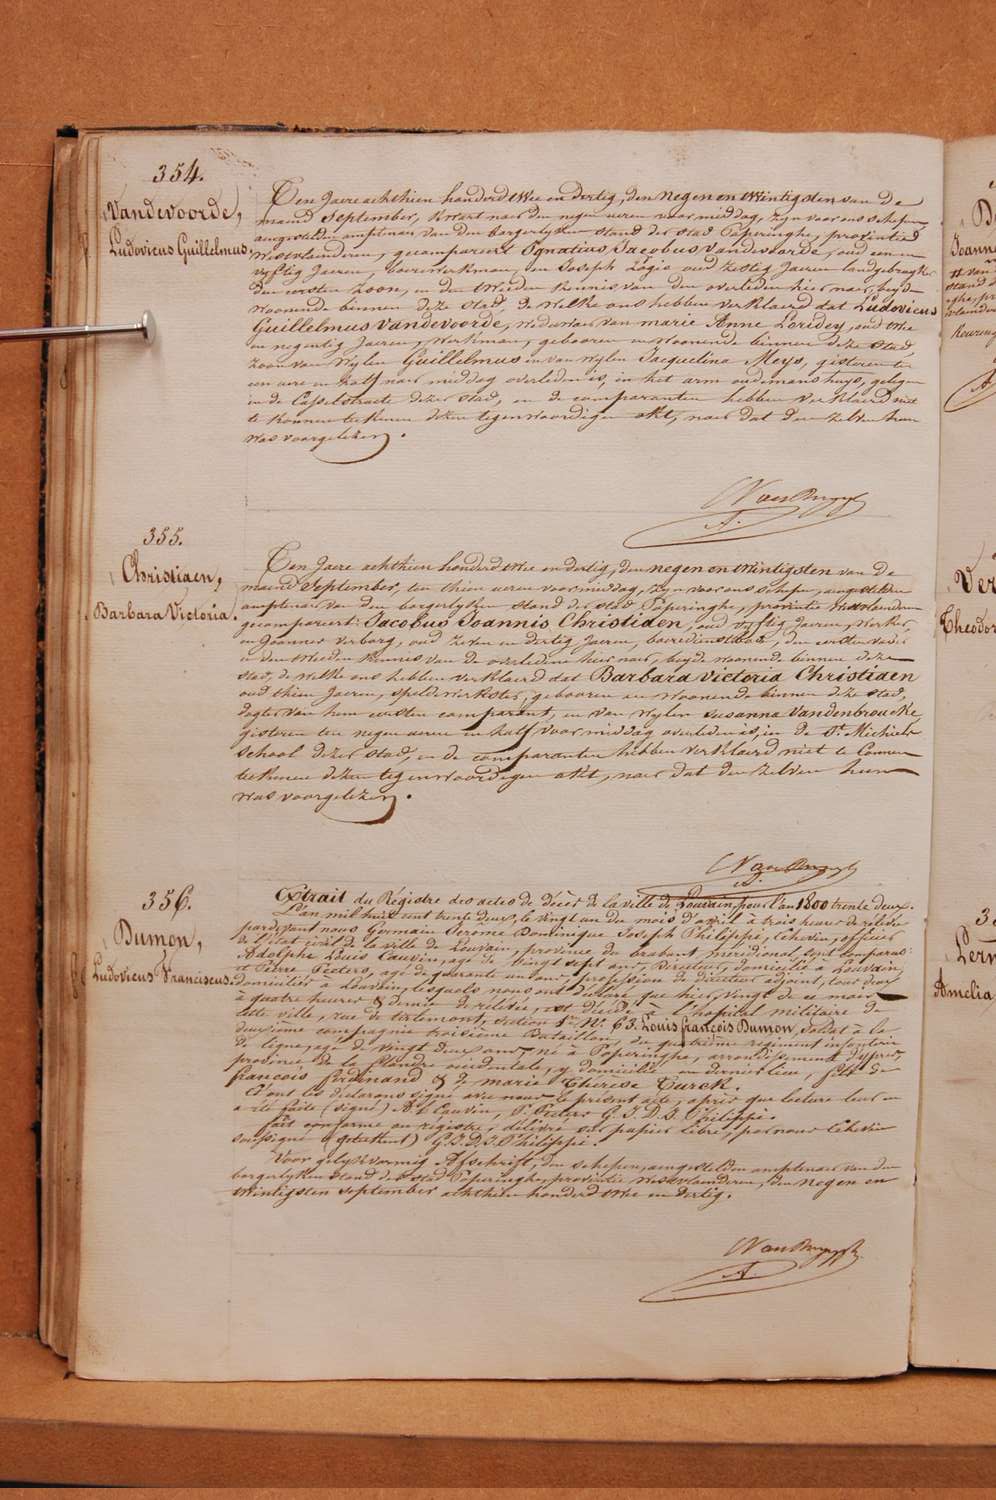 354.
Vandevoorde,
Ludovicus Guillelmus.
Ten Jaere achthien honderd twee en dertig, den negen en twintigsten van de
maend September, kwart naer den negen ueren voormiddag, zyn voor ons schepen
aengestelden amptenaer van den borgerlyken stand der stad Poperinghe, provintie
Westvlaenderen, gecompareert Ignatius Jacobus Vandevoorde, oud een en
vyftig Jaeren, boerewerkman, en Joseph Logie oud zestig Jaeren landgebruyker
den eersten zoon, en den tweeden kennis van den overleden hier naer, beyde
woonende binnen deze stad, de welke ons hebben verklaerd dat Ludovicus
Guillelmus Vandevoorde, weduwaer van marie Anne Loridey, oud twee
en negentig Jaeren, werkman, gebooren en woonende binnen deze stad,
zoon van wylen Guillelmus en van wylen Jacquelina Meys, gisteren ten
een uere en half naer middag overleden is, in het arm oudemans huys, gelegen
in de Casselstraete dezer stad, en de comparanten hebben verklaerd niet
te konnen teekenen dezen tegenwoordigen akt, naer dat den zelven hun
was voorgelezen.
A.
355.
Christiaen,
Barbara Victoria.
Ten Jaere achthien honderd twee en dertig, den negen en twintigsten van de
maend September, ten thien ueren voormiddag, zyn voor ons schepen, aengestelden
amptenaer van den borgerlyken stand der stad Poperinghe, provintie Westvlaenderen
gecompareert: Jacobus Joannis Christiaen, oud vyftig Jaeren, werker,
en Joannes Verborg, oud zeven en dertig Jaeren, boeredienstbode, den eersten vader
en den tweeden kennis van de overledene hier naer, beyde woonende binnen deze
stad, de welke ons hebben verklaerd dat Barbara Victoria Christiaen
oud thien Jaeren, speldewerkster, gebooren en woonende binnen deze stad,
dogter van hem eersten comparant, en van wylen Susanna Vandenbroucke,
gisteren ten negen ueren en half voormiddag overleden is, in de St. Michiels
school dezer stad, en de comparanten hebben verklaerd niet te konnen
teekenen dezen tegenwoordigen akt, naer dat den zelven hun
was voorgelezen.
356.
Dumon,
Ludovicus Franciscus.
Extrait du Régistre des actes de décès de la ville de Louvain, pour l'an 1800 trente deux.
L'an mil huit cent trente deux, le vingt un du mois d'avril à trois heures de relevée
pardevant nous Germain Jerôme Dominique Joseph Philippi, Echevin, officier
de l'état civil de la ville de Louvain, province du brabant méridional, sont comparus
Adolphe Louis Cauvin, agé de vingt sept ans, Directeur, domicilié à Louvain,
et Pierre Peeters, agé de quarante un ans, profession de directeur adjoint, tous deux
domiciliés à Louvain, lesquels nous ont déclaré, que hier, vingt de ce mois
à quatre heures & demie de relevée, est décédé à l'hopital militaire de
cette ville, rue de tirlemont, section 1re No. 63. Louis françois Dumon, soldat à la
deuxième compagnie troisième Bataillon, du quatrième régiment infanterie
de ligne, agé de vingt deux ans, né à Poperinghe, arrondissement d'ypres,
province de la flandre occidentale, y domicilié en dernier lieu, fils de
françois ferdinand & de marie Therese Turck.
Et ont les déclarans signé avec nous le présent acte, après que lecture leur en
a été faite (signé) A. L. Cauvin, P. Peeters G. J. D. J. Philippi.
fait conforme au régistre, délivré sur papier libre, par nous Echevin
soussigné G. J. D. J. Philippi.
Voor gelykvormig Afschrift, den schepen, aengestelden amptenaer van den
borgerlyken stand der stad Poperinghe, provintie Westvlaenderen, den negen en
twintigsten september achthien honderd twee en dertig.
A.